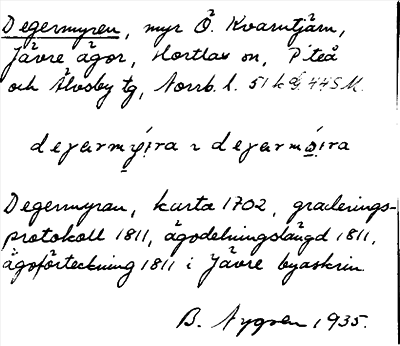 Degermyren, myr Ö. Kvarntjärn,
Jävre ägor, Hortlax sn, Piteå
och Älvsby tg, Norrb. l. 51 k 445 M.
degermýra ~ degermóira
Degermyran, karta 1702, graderings-
protokoll 1811, ägodelningslängd 1811,
ägoförteckning 1811 i Jävre byaskrin
B. Nygren 1935.